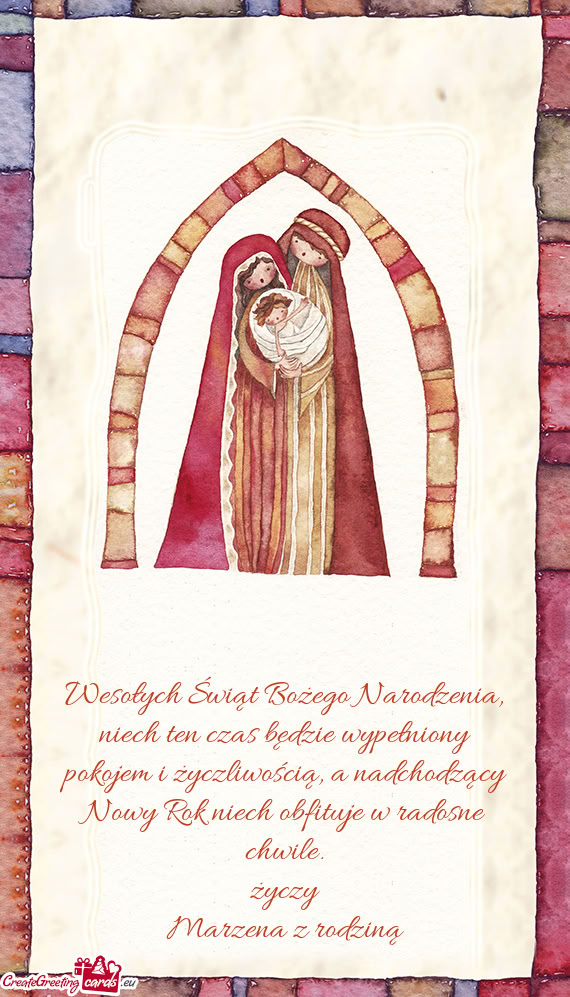 Wesołych Świąt Bożego Narodzenia,
niech ten czas będzie wypełniony
pokojem i życzliwością, a nadchodzący
Nowy Rok niech obfituje w radosne
chwile.
życzy
Marzena z rodziną
CreateGreeting cards .eu